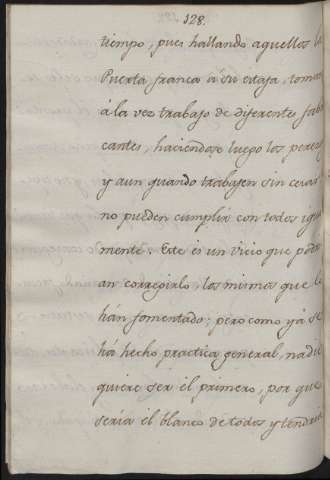 128.
tiempo, pues hallando aquellos la
Puerta franca à su estafa, toman
á la vez trabajo de diferentes fabri
cantes, haciendose luego los perezo
y aun quando trabajen sin cesar
no pueden cumplir con todos igual
mente. Este es un vicio que podri
an corregirlo, los mismos que lo
hán fomentado; pero como yá se
há hecho practica general, nadie
quiere ser el primero, por que
sería el blanco de todos y tendria